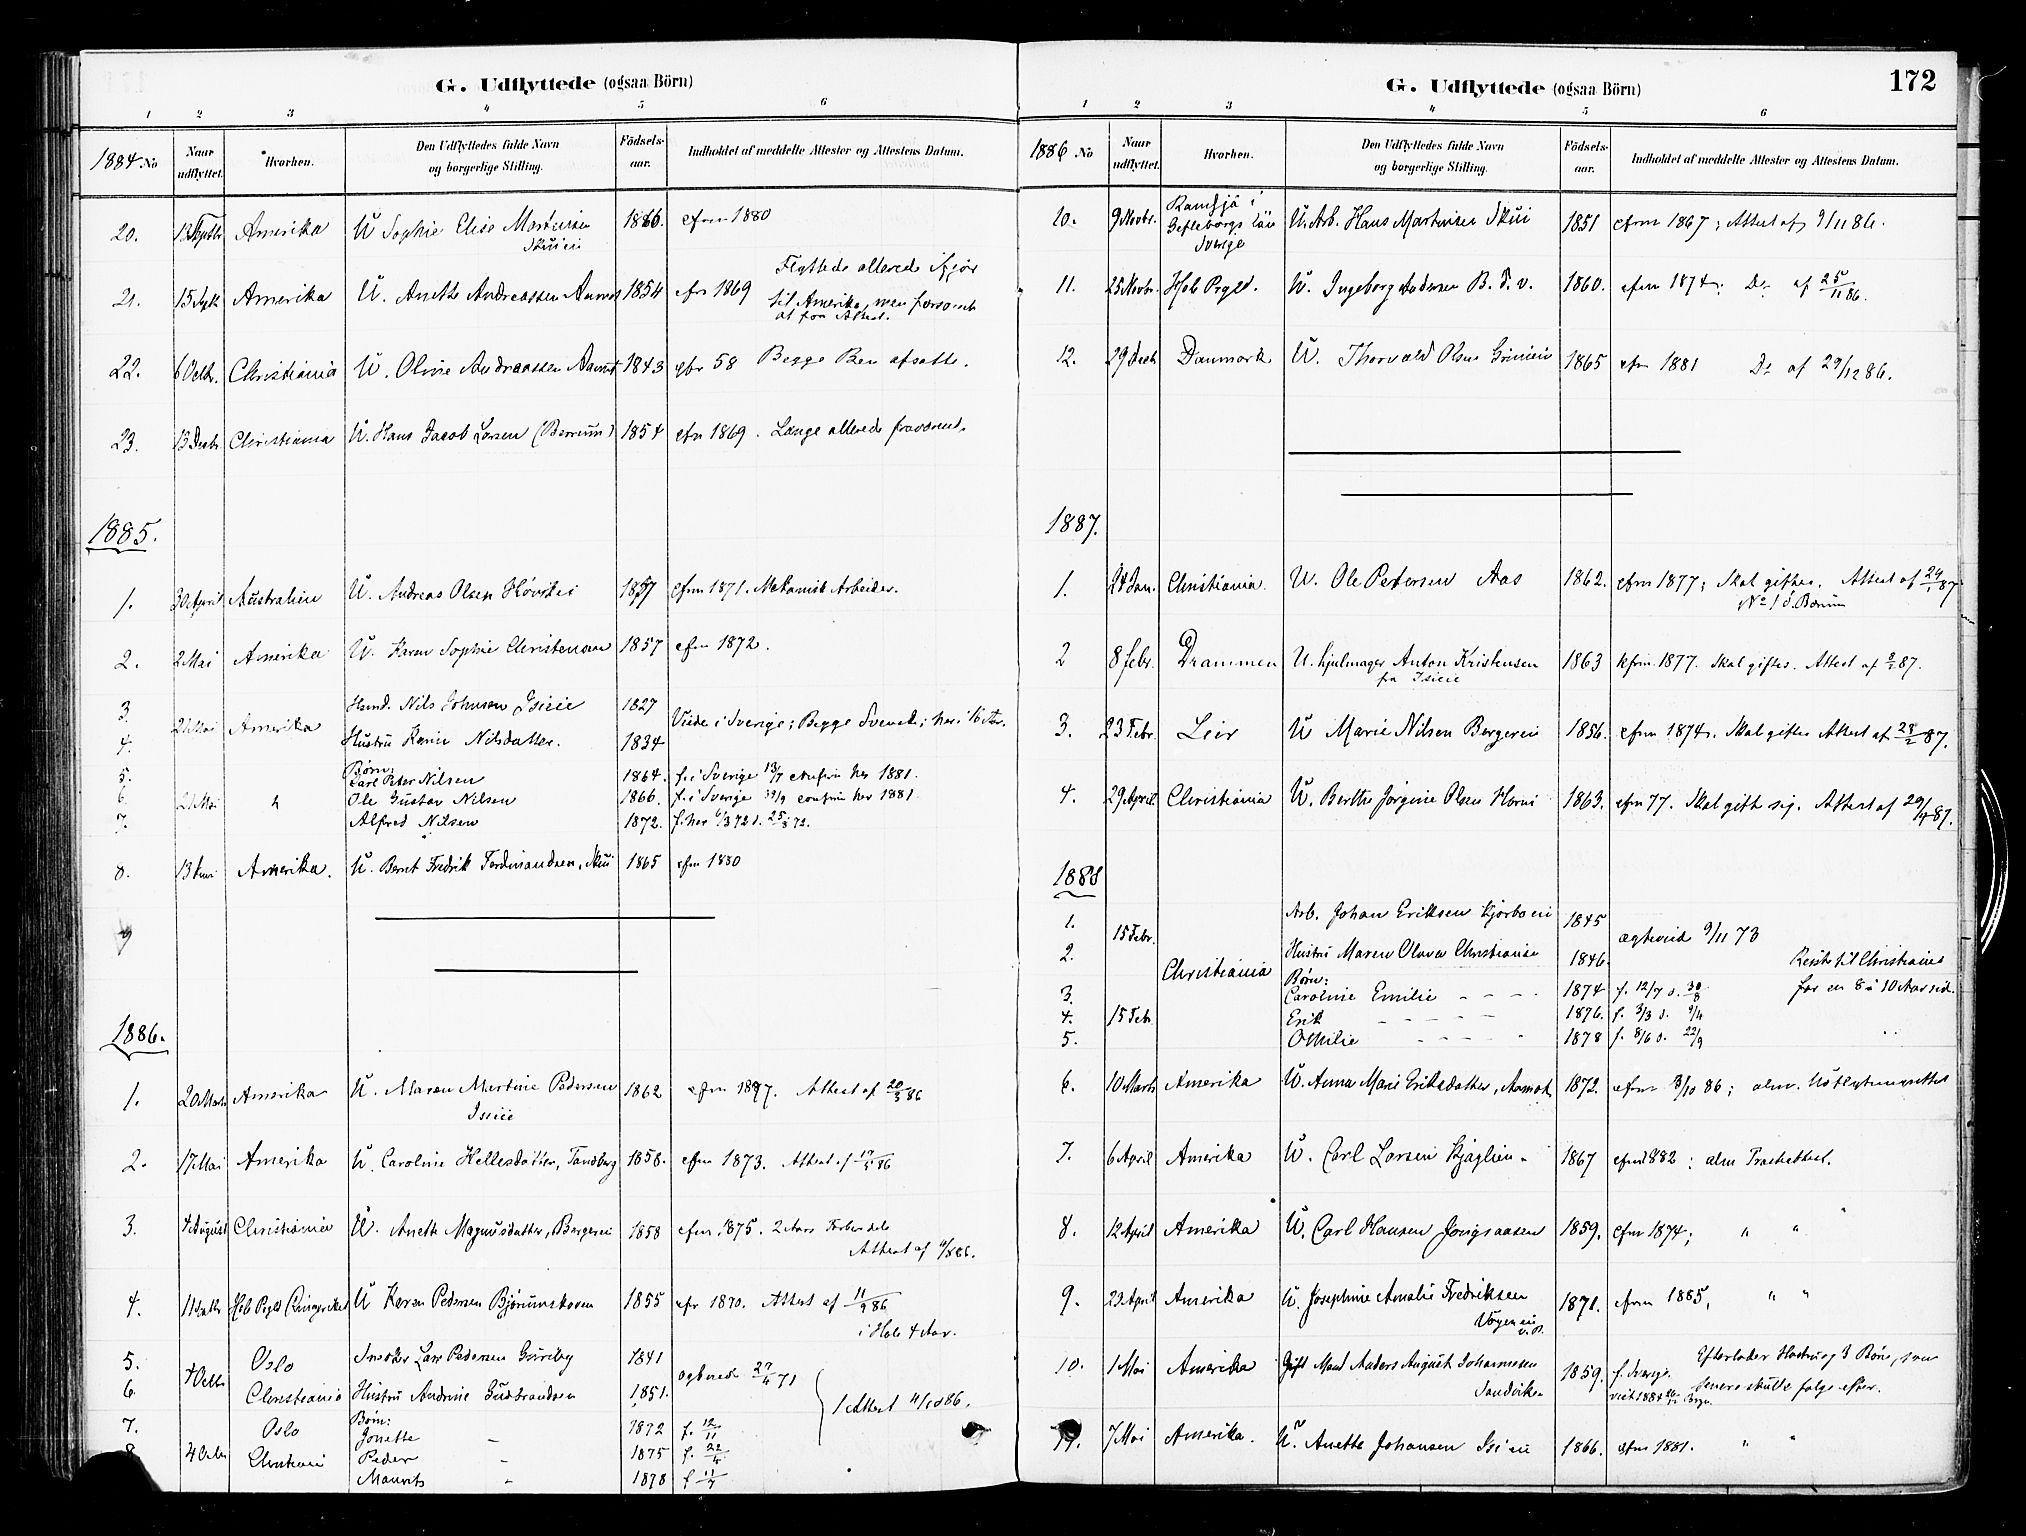 G. Udflyttede (ogsaa Börn)
1 2 3 4 5 6
1884 No Naar udflyttet. Hvorhen. Den Udflyttedes fulde Navn og borgerlige Stilling. Födsels-aar. Indholdet af meddelte Attester og Attestens Datum.
20. Amerika U Sophie Elise 1866. cfm 1880
21. 15 Amerika U. Anette Andreassen 1854 cfr 1869 Flyttede allerede ifjor
til Amerika, men
at faa Attest.
22. 6 Octbr. Christiania U. Oline Andreassen 1843 cfr 58 Begge Ben afsatte.
23. 13 Decbr. Christiania U. Hans Jacob Larsen (Berrum) 1854 cfm 1869. Længe allerede fraværende.
1885.
1. 30 April Australien U. Andreas Olsen 1857 cfm 1871. Mekanisk Arbeider.
2. 2 Mai Amerika U. Karen Sophie Christensen 1857 cfm 1872.
3. 21 Mai Amerika Nils Johnsen Isieie 1827 Viede i Sverige; Begge Svensk; her i 16 Aar.
4. Hustru Karin Nilsdatter. 1834
Børn:
5. Carl Peter Nilsen 1864. f. i Sverige 13/7 confirm her 1881.
6. 21 Mai Ole Gustav Nilsen 1866. f. i Sverige confirm her 1881.
7. Alfred Nilsen 1872. f. her 72
8. 13 Juni Amerika. U. Bernt Fredrik Ferdinandsen, Skui 1865 cfm 1880
9
1886.
1. 20 Marts Amerika U. Maren Martine Pedersen 1862 cfm 1877. Attest af 20/3 86
Isieie
2. 17 Mai Amerika U. Caroline Hellesdatter, Tandberg 1858. cfm 1873. Attest af 17/5 86
3. 4 August Christiania U. Anette Magnusdatter, Bergerei 1858 cfm 1875. 2 Aars
Attest af 4/8 86.
4. Hole Prgld Ringeriket U Karen Pedersen Bjørumskoven 1855 cfr 1870. Attest af 11/9 86
i Hole 4 Aar.
5. 4 Octb Oslo Lars Pedersen Gurieby 1841 ægtevied 27/4 71
6. Christiania Hustru Andrine Gudbrandsen 1851. 1 Attest 4/10 86.
7. Oslo Børn:
Jonette 1872 f. 12/11
8 4 Octbr Peder 1875 f. 22/4
Maurits 1878 f. 11/7
172
G. Udflyttede (ogsaa Börn)
1 2 3 4 5 6
1886 No Naar udflyttet. Hvorhen. Den Udflyttedes fulde Navn og borgerlige Stilling. Födsels-aar. Indholdet af meddelte Attester og Attestens Datum.
10. 9 Novbr. Ramsjö i
Gefleborgs län
Sverige U. Arb. Hans Martinsen Skui 1851 cfrm 1867; Attest af 9/11 86.
11. 25 Novbr. Hole Prgld. U. Ingeborg Andersen 1860. cfrm 1874; Do af 25/11 86.
12. 29 Decb Danmark U. Thorvald Olsen 1865 cfm 1881 Do af 29/12 86.
1887.
1. 24 Jan. Christiania. U. Ole Petersen Aas 1862. cfrm 1877; Skal giftes. Attest af 24/1 87
No 1 i Bærum
2 8 Febr. Drammen U. hjulmager Anton Kristensen 1863 kfrm 1877. Skal giftes. Attest af 8/2 87.
fra Isieie
3. 23 Febr. Leir U Marie Nilsen Bergerei 1856. cfrm 1874. Skal giftes Attest af 87.
4. 29 April. Christiania U. Berthe Jørgine Olsen Horni 1863. cfm 77. Skal gifte sig. Attest af 29/4 87.
1888
1. 15 Febr. Arb. Johan Eriksen Kjørboeie 1845 ægtevied 9/11 73
2. Hustru Maren Olava Christianse 1846. Reiste til Christiania
Christiania Børn: for en 8 à 10 Aar sid.
3. Caroline Emilie 1874 f. 12/7 d. 30/8
4. 15 Feb Erik 1876. f. 3/3 d. 9/4
5. Othilie 1878 f. 8/6 d. 22/9
6. 10 Marts Amerika U. Anna Marie Eriksdatter, Aamodt 1872. cfm 3/10 86; alm. Udflytningsattest
7. 6 April Amerika U. Carl Larsen 1867 cfm 1882; alm
8. 12 April Amerika U. Carl Hansen Jongsaasen 1859. cfm 1874; " "
9. 23 April Amerika U. Josephine Amalie Fredriksen 1871. cfrm 1885, " "
10. 1 Mai Amerika Gift Mand Anders August Johannesen
Sandviken 1859. f. Sverige. Efterlader Hustru og 3 Børn, som
viet 1884 senere skulle følge efter.
11. 7 Mai Amerika. U. Anette Johansen Isieie 1866. cfm 1881. " "